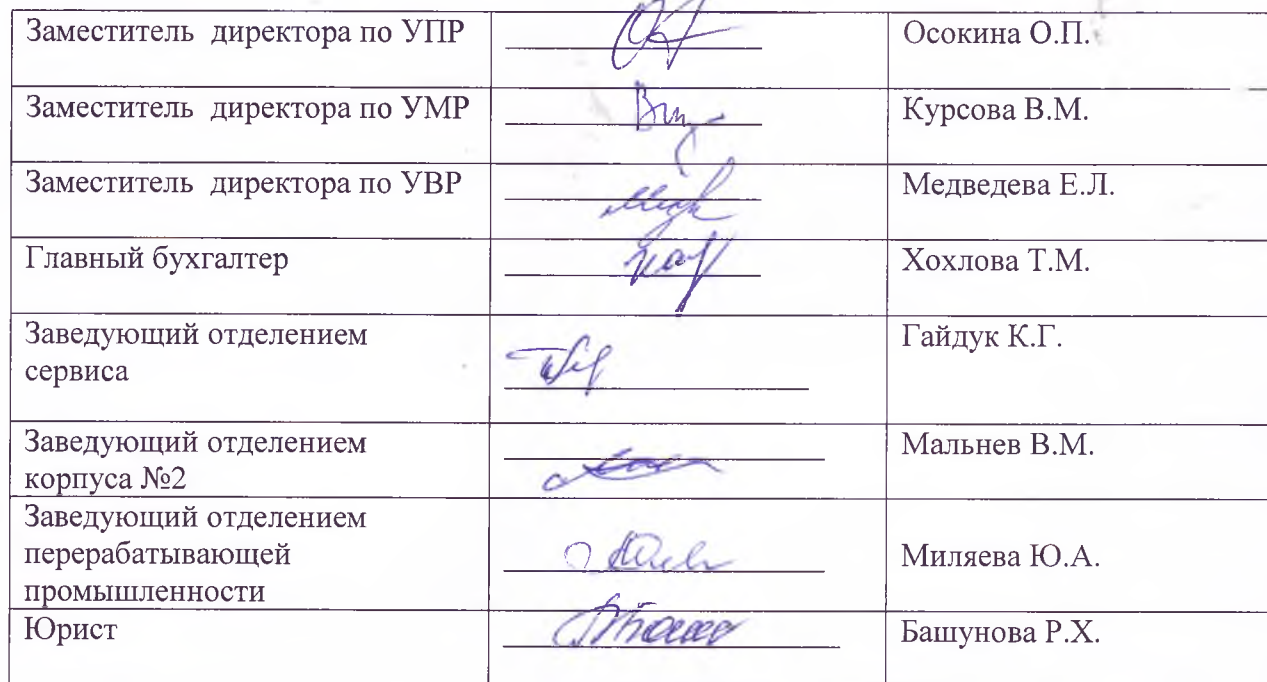 Заместитель директора по УПР Осокина О.П.
Заместитель директора по УМР Курсова В.М.
Заместитель директора по УВР Медведева Е.Л.
Главный бухгалтер Хохлова Т.М.
Заведующий отделением Гайдук К.Г.
сервиса
Заведующий отделением Мальнев В.М.
корпуса №2
Заведующий отделением
перерабатывающей Миляева Ю.А.
промышленности
Юрист Башунова Р.Х.